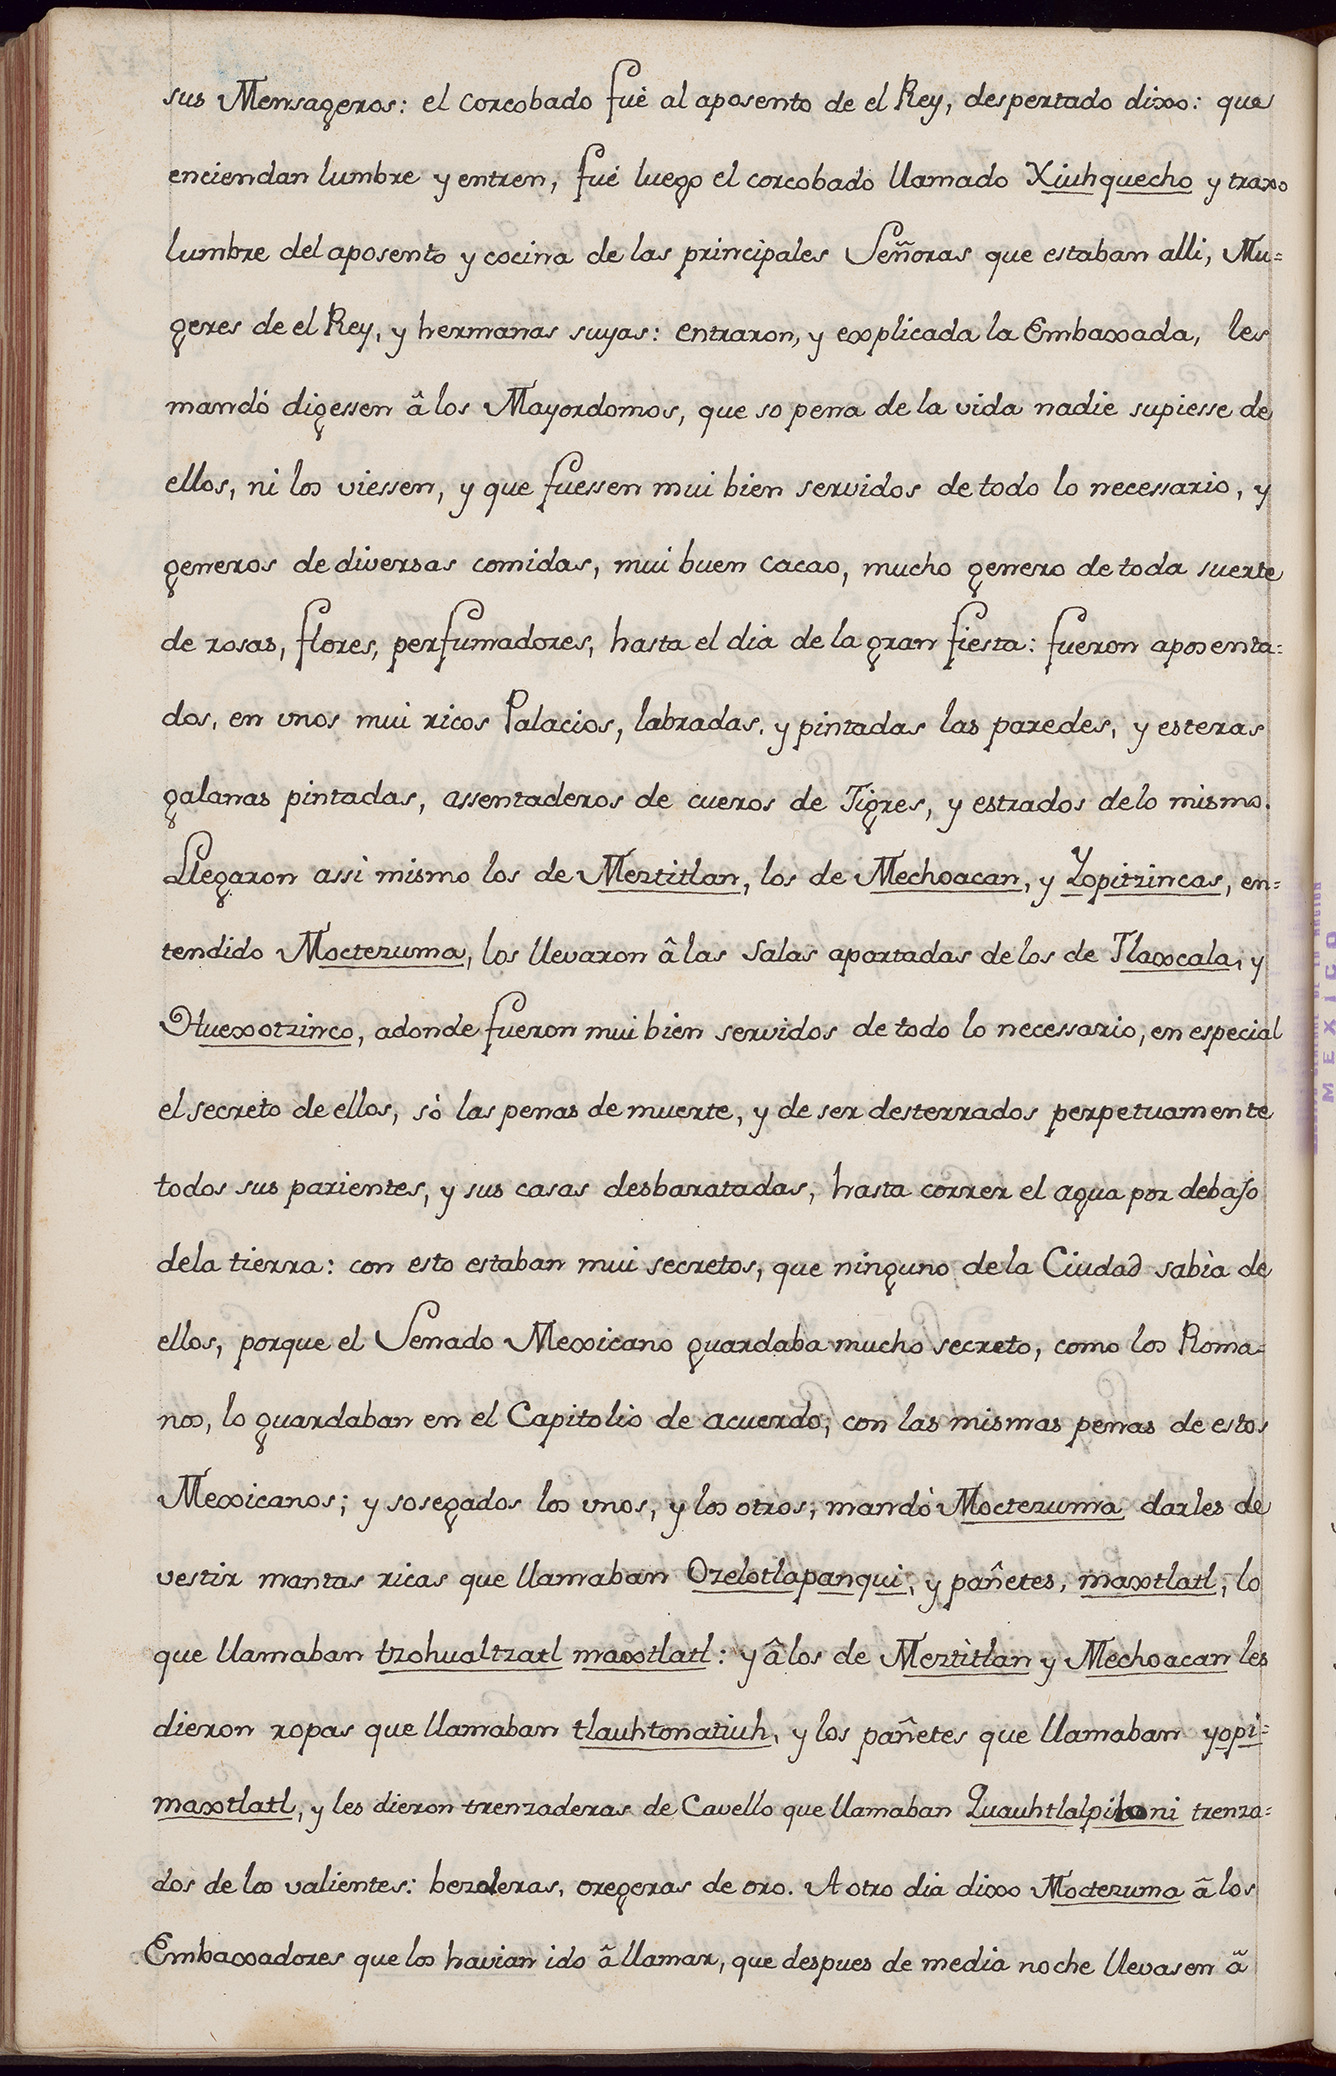 sus Mensageros: el corcobado fuè al aposento de el Rey, despertado dixo: que
enciendan lumbre y entren, fué luego el corcobado llamado Xiuhquecho y traxo
lumbre del aposento y cocina de las principales Señoras que estaban alli, Mu=
geres de el Rey, y hermanas suyas: entraron, y explicada la Embaxada, les
mandó digessen â los Mayordomos, que so pena de la vida nadie supiesse de
ellos, ni los viessen, y que fuessen mui bien servidos de todo lo necessario, y
generos de diversas comidas, mui buen cacao, mucho genero de toda suerte
de rosas, flores, perfumadores, hasta el dia de la gran fiesta: fueron aposenta=
dos, en vnos mui ricos Palacios, labradas, y pintadas las paredes, y esteras
galanas pintadas, assentaderos de cueros de Tigres, y estrados delo mismo.
Llegaron assi mismo los de Meztitlan, los de Mechoacan, y Yopitzincas, en=
tendido Moctezuma, los llevaron â las Salas apartadas de los de Tlaxcala, y
Huexotzinco, adonde fueron mui bien servidos de todo lo necessario, en especial
el secreto de ellos, sò las penas de muerte, y de ser desterrados perpetuamente
todos sus parientes, y sus casas desbaratadas, hasta correr el agua por debajo
dela tierra: con esto estaban mui secretos, que ninguno de la Ciudad sabìa de
ellos, porque el Senado Mexicano guardaba mucho secreto, como los Roma=
nos, lo guardaban en el Capitolio de acuerdo, con las mismas penas de estos
Mexicanos; y sosegados los vnos, y los otros, mandò Moctezuma darles de
vestir mantas ricas que llamaban Ozelotlapanqui, y pañetes, maxtlatl, lo
que llamaban tzohualtzatl maxtlatl: y â los de Meztitlan y Mechoacan les
dieron ropas que llamaban tlauhtonatiuh, y los pañetes que llamaban yopi=
maxtlatl, y les dieron trenzaderas de Cavello que llamaban Quauhtlalpiloni trenza=
dos de los valientes: bezoleras, oregeras de oro. A otro dia dixo Moctezuma â los
Embaxadores que los havian ido â llamar, que despues de media noche llevasen â
MEXICO